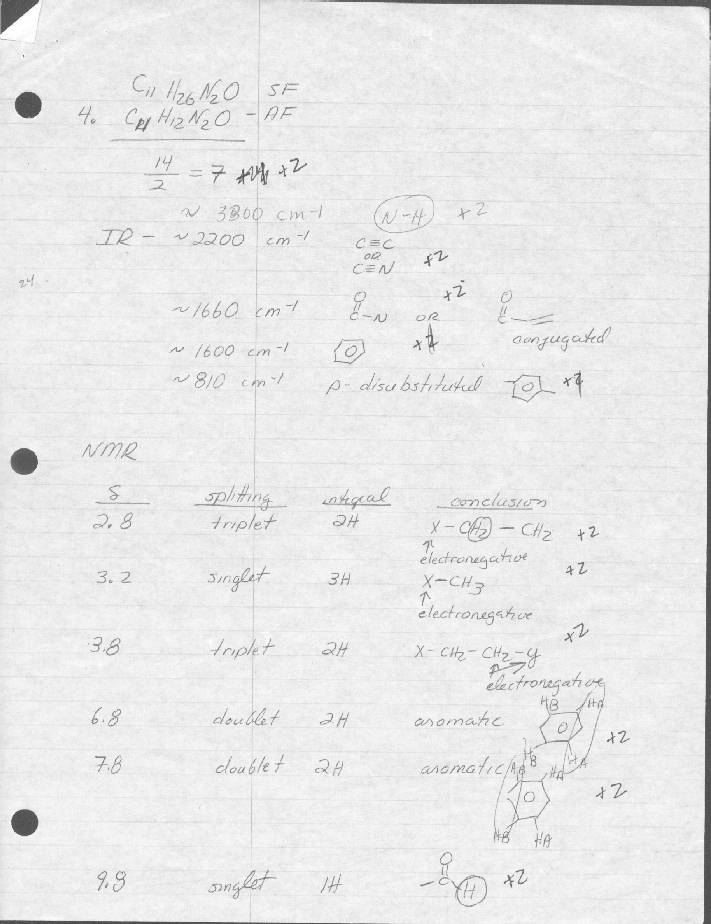 C11 H26 N2O SF
4. C11 H12 N2O - AF
14/2 = 7 +2
~ 3300 cm-1 N-H +2
IR - ~2200 cm-1 C≡C
OR
C≡N +2
24
~1660 cm-1 O C-N +2 OR O C
conjugated
~1600 cm-1 +2
~810 cm-1 p-disubstituted +2
NMR
δ splitting integral conclusion
2.8 triplet 2H X-CH2-CH2 +2
electronegative
3.2 singlet 3H X-CH3 +2
electronegative
3.8 triplet 2H X-CH2-CH2-y +2
electronegative
6.8 doublet 2H aromatic HB HA HB HA +2
7.8 doublet 2H aromatic HB HA HB HA +2
9.8 singlet 1H O C H +2